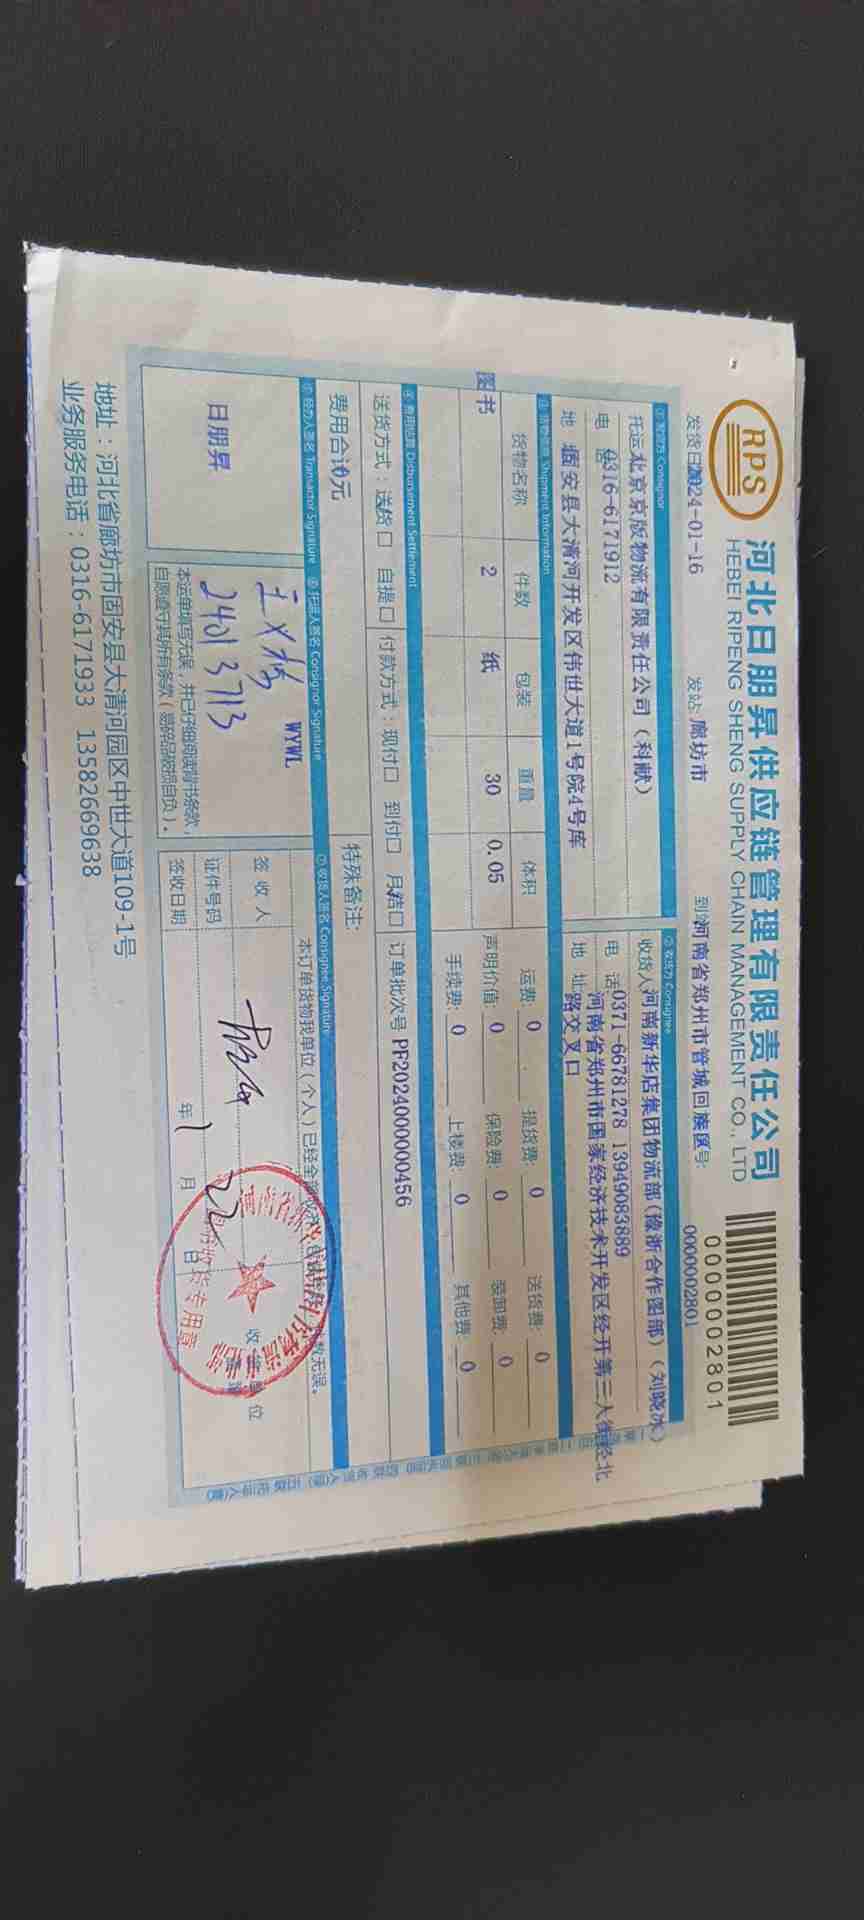 RPS
河北日朋昇供应链管理有限责任公司
HEBEI RIPENG SHENG SUPPLY CHAIN MANAGEMENT CO., LTD
0000002801
发货日期2024-01-16 发站:廊坊市 到站河南省郑州市管城回族区 号: 0000002801
① 发货方 Consignor
托运 北京京版物流有限责任公司（科献）
电 话 0316-6171912
地 址 固安县大清河开发区伟世大道1号院4号库
② 收货方 Consignee
收货人 河南新华店集团物流部(豫浙合作图部)（刘晓冰）
电 话 0371-66781278 13949083889
地 址 河南省郑州市国家经济技术开发区经开第三大街经北
路交叉口
③ 货物信息 Shipment Information
货物名称 件数 包装 重量 体积
图书 2 纸 30 0.05
运费: 0 提货费: 0 送货费: 0
声明价值: 0 保险费: 0 装卸费: 0
手续费: 0 上楼费: 0 其他费: 0
④ 费用结算 Disbursement Settlement
送货方式：送货口 自提口 付款方式：现付口 到付口 月结口 订单批次号 PF2024000000456
费用合计0元 特殊备注:
⑤ 经办人签名 Transactor Signature
⑥ 托运人签名 Consignor Signature
⑦ 收货人签名 Consignee Signature
日朋昇
WYWL
24013713
本运单填写无误，并已仔细阅读背书条款，
自愿遵守其所有条款（易碎品破损自负）。
本订单货物我单位（个人）已经全部 数无误。
签 收 人
证件号码
签收日期 年 1 月 22 日
收货专用章
地址：河北省廊坊市固安县大清河园区中世大道109-1号
业务服务电话：0316-6171933 13582669638